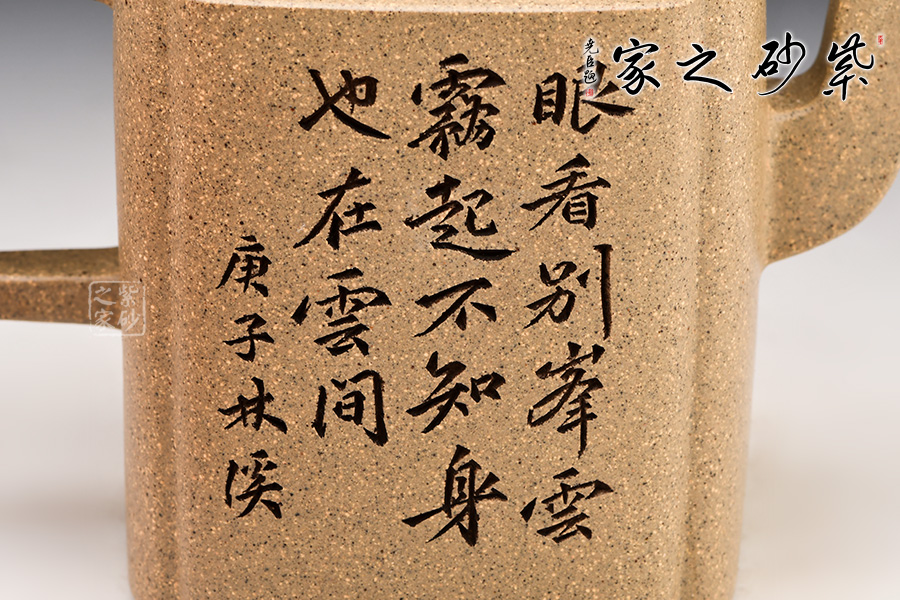 眼看别峯雲
霧起不知身
也在雲间
庚子林溪
紫砂之家
紫砂之家